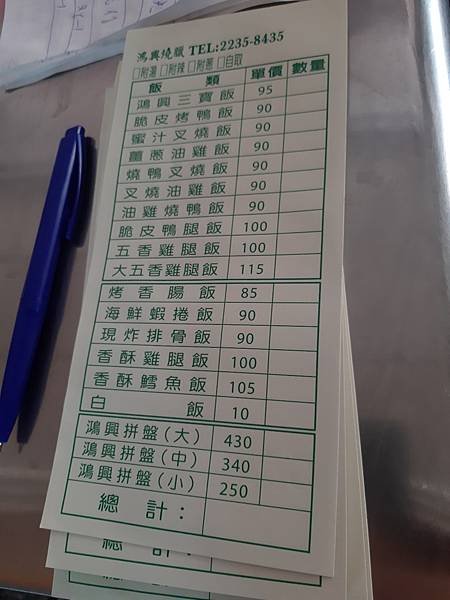 鴻興燒臘 TEL:2235-8435
□附湯 □附辣 □附蔥 □自取
飯類 單價 數量
鴻興三寶飯 95
脆皮烤鴨飯 90
蜜汁叉燒飯 90
薑蔥油雞飯 90
燒鴨叉燒飯 90
叉燒油雞飯 90
油雞燒鴨飯 90
脆皮鴨腿飯 100
五香雞腿飯 100
大五香雞腿飯 115
烤香腸飯 85
海鮮蝦捲飯 90
現炸排骨飯 90
香酥雞腿飯 100
香酥鱈魚飯 105
白飯 10
鴻興拼盤(大) 430
鴻興拼盤(中) 340
鴻興拼盤(小) 250
總計：
總計：